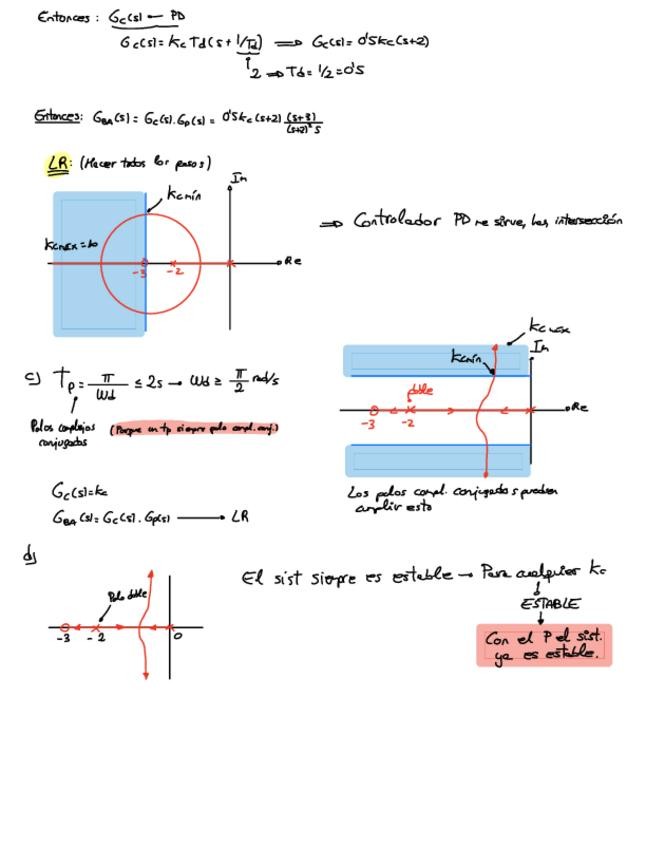 Entonces: Gc(s) ← PD
Gc(s) = Kc Td (s + 1/Td) ⟹ Gc(s) = 0'5 Kc (s+2)
2 ⟹ Td = 1/2 = 0'5
Entonces: GBA(s) = Gc(s) · Gp(s) = 0'5 Kc (s+2) (s+3)/(s+2)² s
LR: (Hacer todos los pasos)
Im
Kcmín
Kcmáx = ∞
-3
-2
Re
⟹ Controlador PD me sirve, hay intersección
c) Tp = π/Wd ≤ 2s → Wd ≥ π/2 rad/s
Polos complejos conjugados
(Porque un tp siempre polo compl. conj.)
Kcmáx
Im
Kcmín
doble
-3
-2
Re
Los polos compl. conjugados pueden
cumplir esto
Gc(s) = Kc
GBA(s) = Gc(s) · Gp(s) → LR
d)
Polo doble
-3
-2
0
El sist siempre es estable → Para cualquier Kc
ESTABLE
Con el P el sist.
ya es estable.